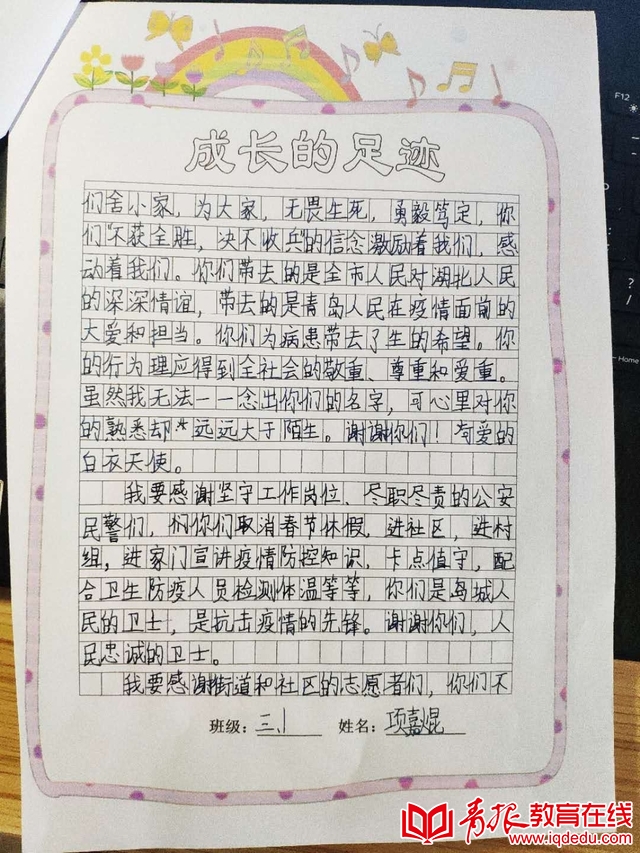 成长的足迹
们舍小家，为大家，无畏生死，勇毅笃定，你
们“不获全胜，决不收兵”的信念激励着我们，感
动着我们。你们带去的是全市人民对湖北人民
的深深情谊，带去的是青岛人民在疫情面前的
大爱和担当。你们为病患带去了生的希望。你
的行为理应得到全社会的敬重、尊重和爱重。
虽然我无法一一念出你们的名字，可心里对你
的熟悉却*远远大于陌生。谢谢你们！可爱的
白衣天使。
我要感谢坚守工作岗位、尽职尽责的公安
民警们，你们取消春节休假，进社区，进村
组，进家门宣讲疫情防控知识，卡点值守，配
合卫生防疫人员检测体温等等，你们是岛城人
民的卫士，是抗击疫情的先锋。谢谢你们，人
民忠诚的卫士。
我要感谢街道和社区的志愿者们，你们不
班级：三、1 姓名：项嘉焜
F12
Home
青报教育在线
www.iqdedu.com